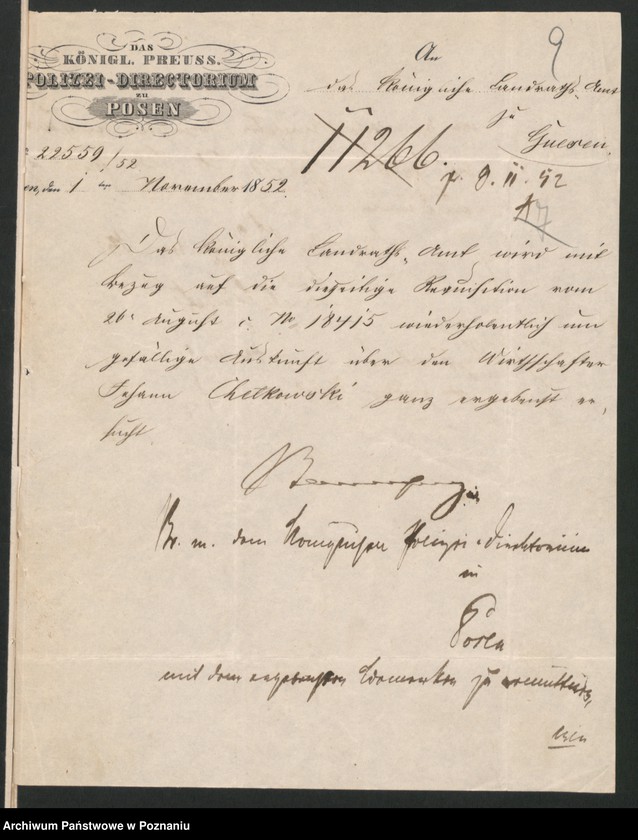 DAS
KÖNIGL. PREUSS.
POLIZEI-DIRECTORIUM
ZU
POSEN
22559/52
den 1 ten November 1852.
9
An
das Königliche Landraths-Amt
zu
Gnesen.
11266.
p. 9. 11. 52
Das Königliche Landraths-Amt wird mit
Bezug auf die diesseitige Requisition vom
26t August c. No 18415 wiederholentlich um
gefällige Auskunft über den Wirthschafter
Johann Chelkowski ganz ergebenst er-
sucht.
Br. m. dem Königlichen Polizei-Direktorium
in
Posen
mit dem ergebensten Bemerken zu
Archiwum Państwowe w Poznaniu